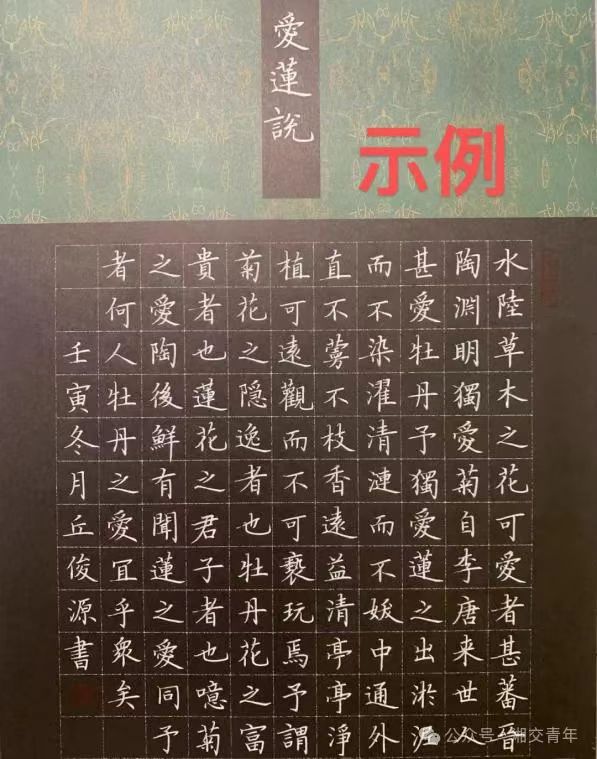 愛蓮說
示例
水陸草木之花可愛者甚蕃晉
陶淵明獨愛菊自李唐来世人
甚愛牡丹予獨愛蓮之出淤泥
而不染濯清漣而不妖中通外
直不蔓不枝香遠益清亭亭淨
植可遠觀而不可褻玩焉予謂
菊花之隱逸者也牡丹花之富
貴者也蓮花之君子者也噫菊
之愛陶後鮮有聞蓮之愛同予
者何人牡丹之愛宜乎衆矣
壬寅冬月丘俊源書
公众号·湘交青年